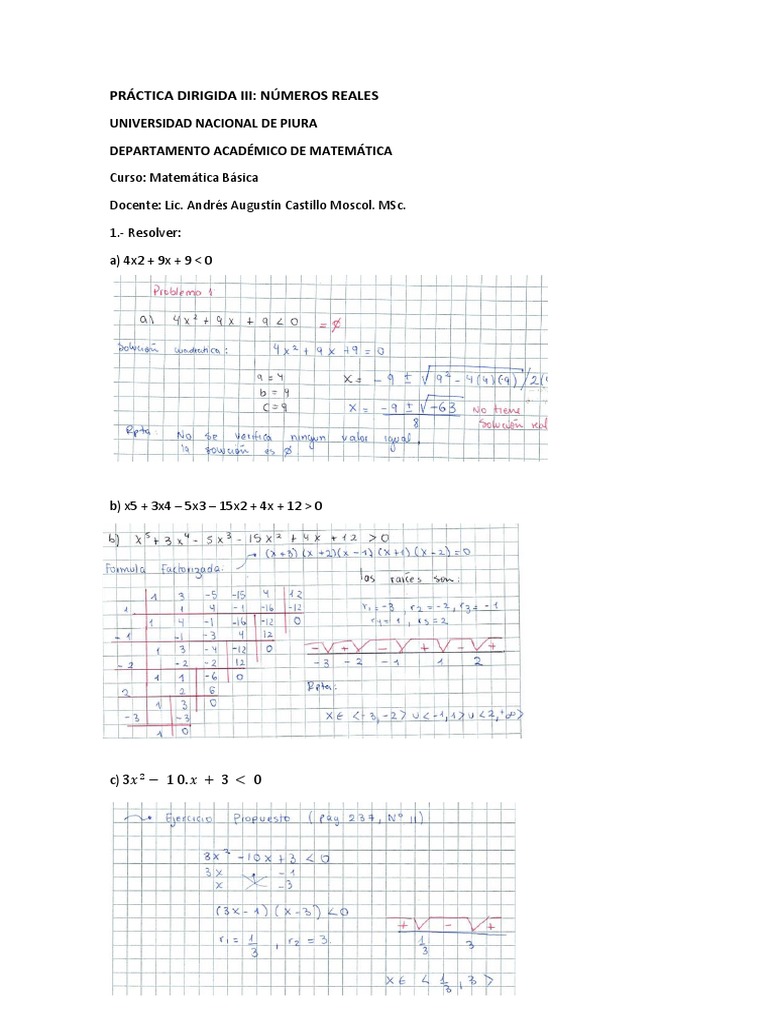 PRÁCTICA DIRIGIDA III: NÚMEROS REALES
UNIVERSIDAD NACIONAL DE PIURA
DEPARTAMENTO ACADÉMICO DE MATEMÁTICA
Curso: Matemática Básica
Docente: Lic. Andrés Augustín Castillo Moscol. MSc.
1.- Resolver:
a) 4x2 + 9x + 9 < 0
Problema 1
a) 4x² + 9x + 9 < 0 = ∅
Solución cuadratica: 4x² + 9x + 9 = 0
a = 4 x = -9 ± √9² - 4(4)(-9) / 2(4
b = 9
c = 9 x = -9 ± √-63 No tiene
8 Solución real
Rpta: No se verifica ningun valor igual,
la solución es ∅
b) x5 + 3x4 – 5x3 – 15x2 + 4x + 12 > 0
b) x⁵ + 3x⁴ - 5x³ - 15x² + 4x + 12 > 0
→ (x+3)(x+2)(x-1)(x+1)(x-2) = 0
Formula Factorizada.
las raíces son:
1 3 -5 -15 4 12
r₁=-3, r₂=-2, r₃=-1
1 1 4 -1 -16 -12
r₄=1, r₅=2
1 4 -1 -16 -12 0
-1 -1 -3 4 12
1 3 -4 -12 0
- + - + - +
-2 -2 -2 12
-3 -2 -1 1 2
1 1 -6 0
Rpta:
2 2 6
1 3 0
x ∈ <-3, -2> ∪ <-1, 1> ∪ <2, +∞>
-3 -3
1 0
c) 3x² − 10.x + 3 < 0
Ejercicio Propuesto (pág 237, N° 11)
3x² - 10x + 3 < 0
3x -1
x -3
(3x-1)(x-3) < 0
+ - +
r₁ = 1/3, r₂ = 3.
1/3 3
x ∈ < 1/3, 3 >